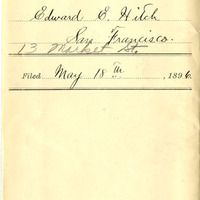 Edward E. Hitch
San Francisco.
13 Market St.
Filed May 18th, 1896